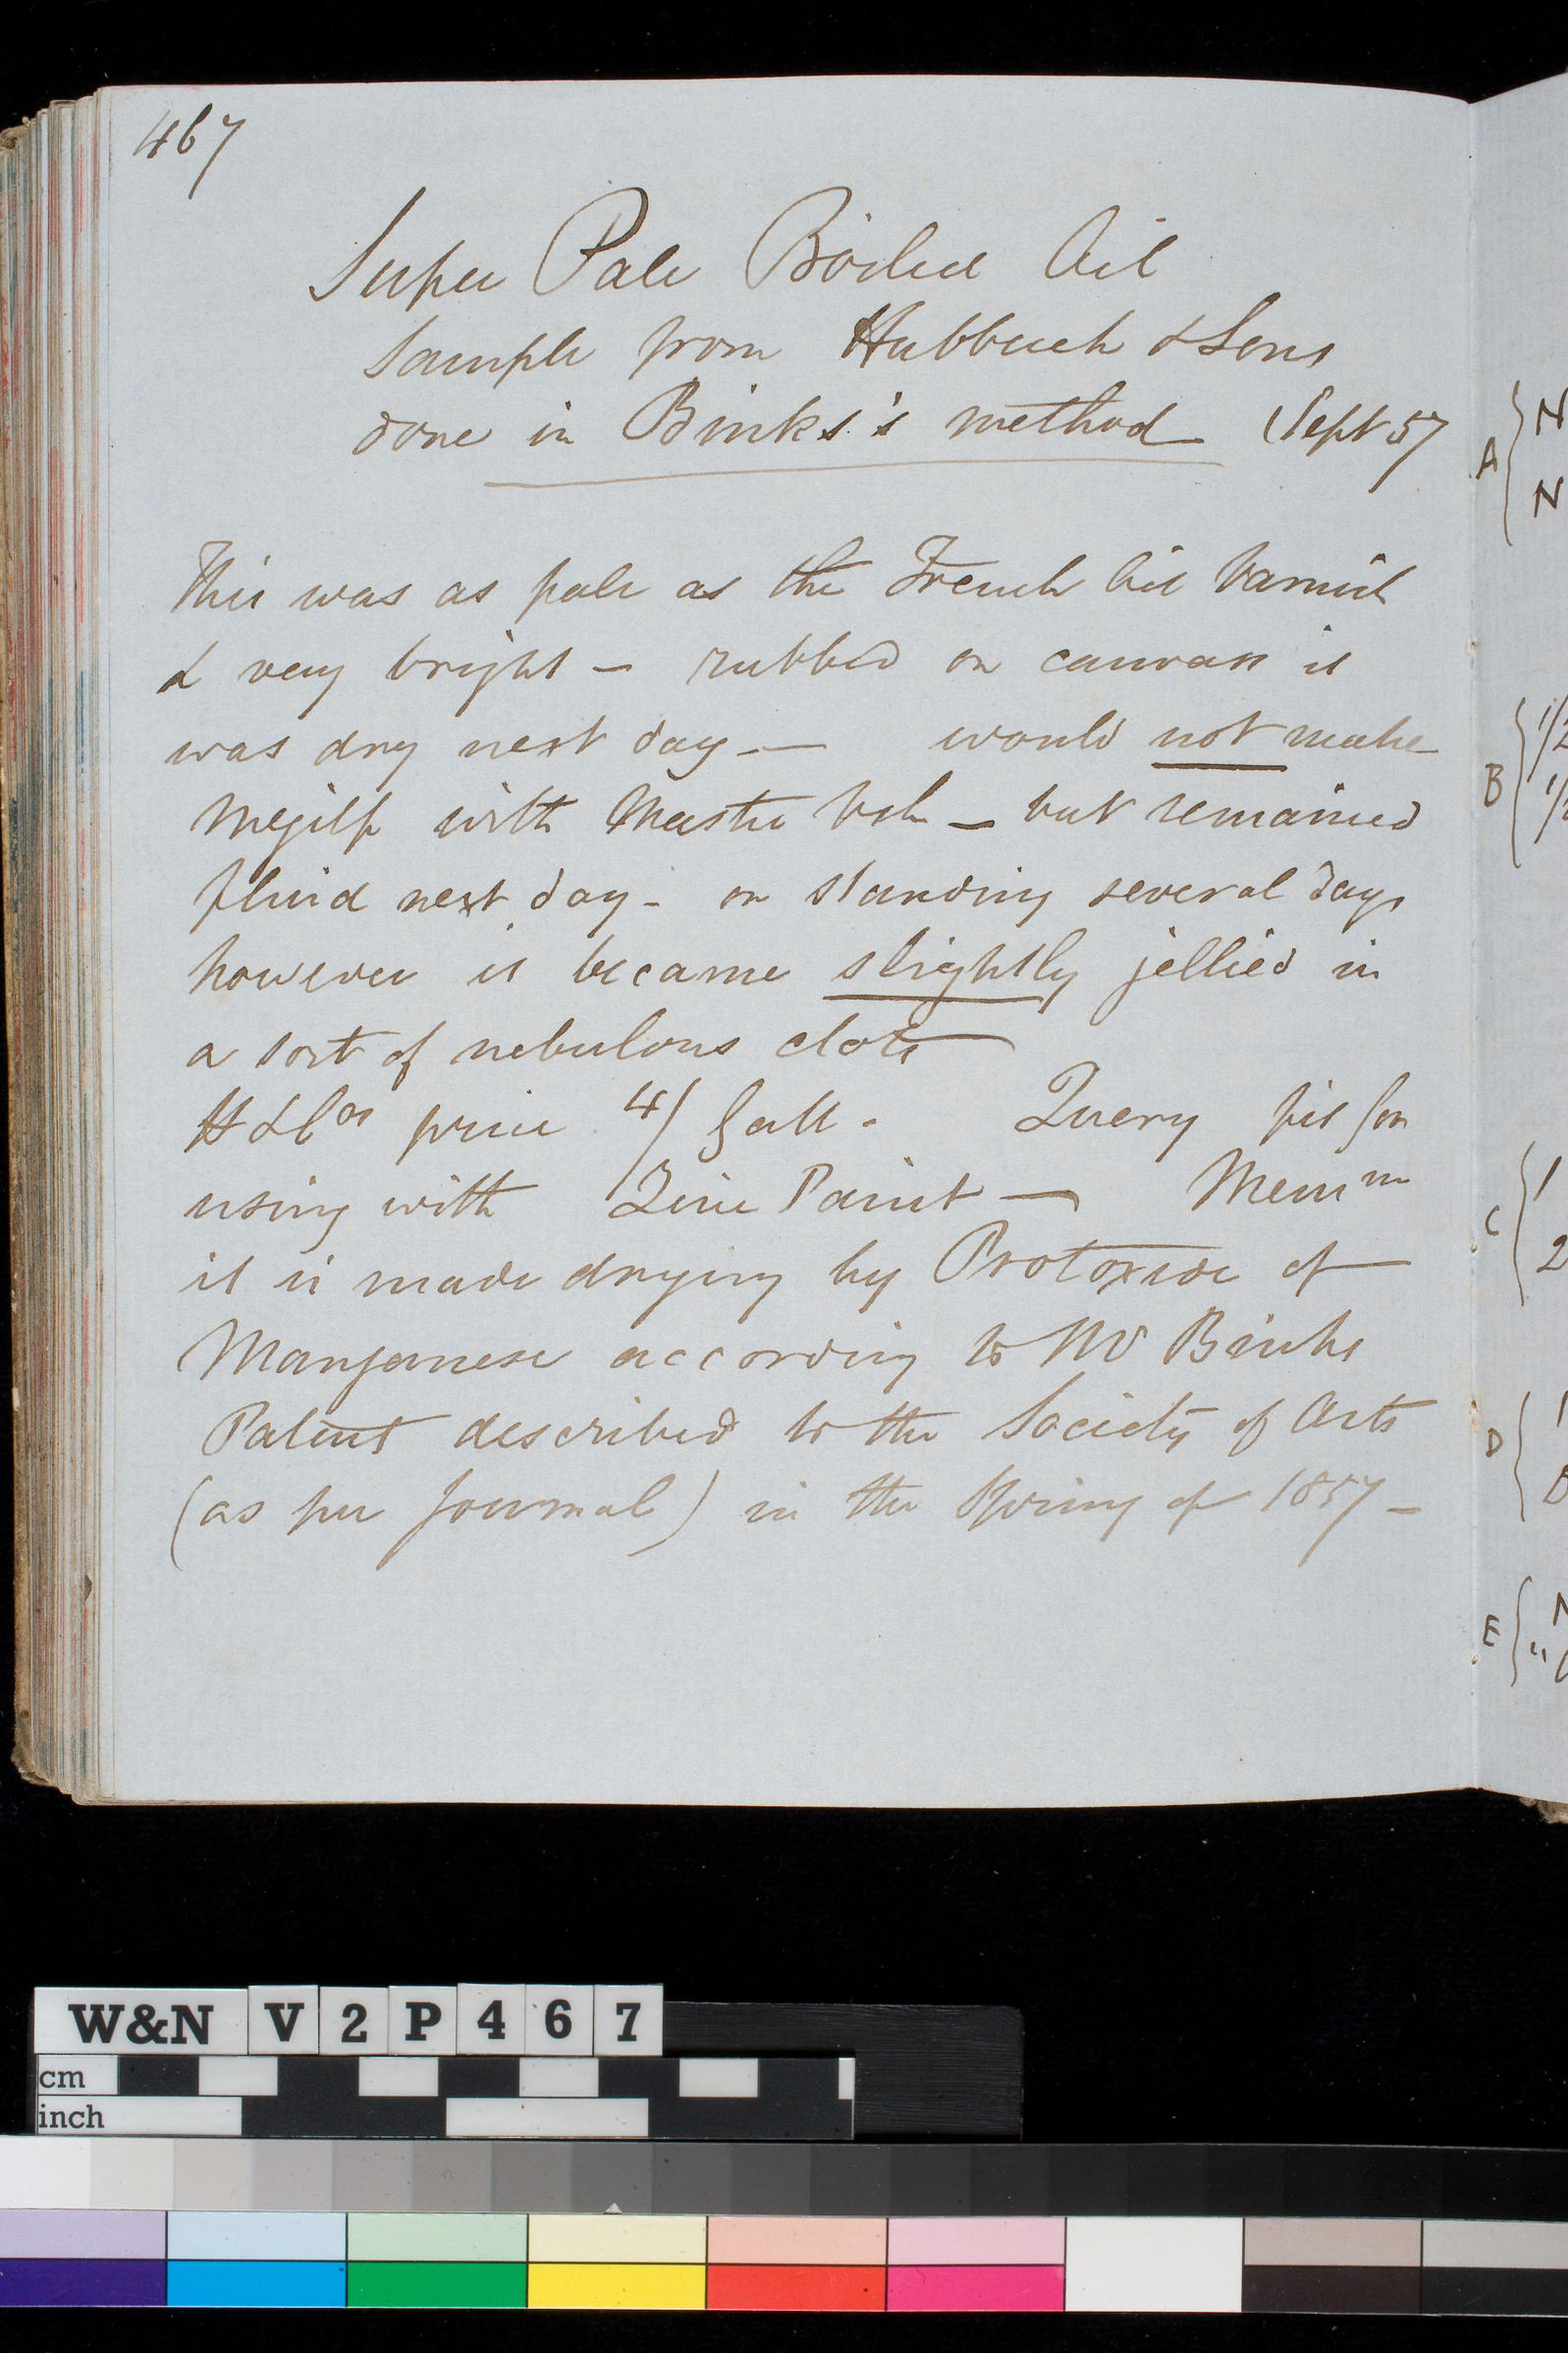 467
Super Pale Boiled Oil
Sample from Hubbuck & Sons
done in Binks's method (Sept 57
This was as pale as the French Oil Varnish
& very bright — rubbed on canvass it
was dry next day — would not make
Megilp with Mastic Vsh — but remained
fluid next day - on standing several days
however it became slightly jellied in
a sort of nebulous clots
H & Cos price 4/ Gall - Query fit for
using with Zinc Paint — Memm
it is made drying by Protoxide of
Manganese according to Mr Binks
Patent described to the Society of Arts
(as per Journal) in the Spring of 1857 -
A { N
N
B { 1/2
C { 1
2
D {
E {
W&N V2P467
cm
inch